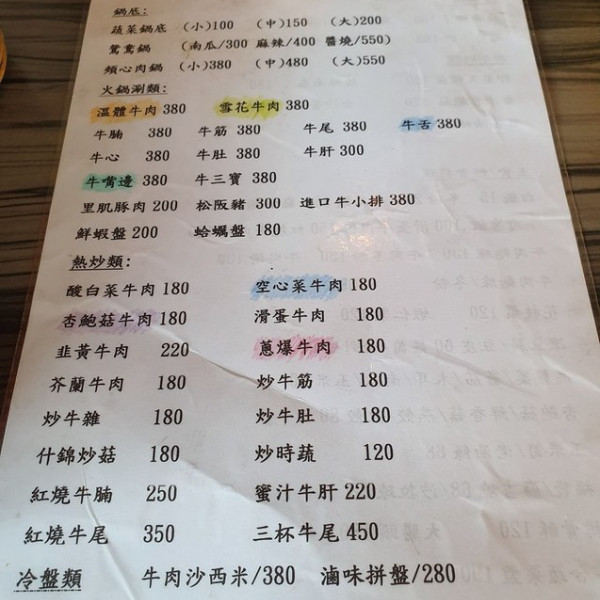 鍋底:
蔬菜鍋底 (小)100 (中)150 (大)200
鴛鴦鍋 (南瓜/300 麻辣/400 醬燒/550)
頰心肉鍋 (小)380 (中)480 (大)550
火鍋涮類:
溫體牛肉 380 雪花牛肉 380
牛腩 380 牛筋 380 牛尾 380 牛舌 380
牛心 380 牛肚 380 牛肝 300
牛嘴邊 380 牛三寶 380
里肌豚肉 200 松阪豬 300 進口牛小排 380
鮮蝦盤 200 蛤蠣盤 180
熱炒類:
酸白菜牛肉 180 空心菜牛肉 180
杏鮑菇牛肉 180 滑蛋牛肉 180
韭黃牛肉 220 蔥爆牛肉 180
芥蘭牛肉 180 炒牛筋 180
炒牛雜 180 炒牛肚 180
什錦炒菇 180 炒時蔬 120
紅燒牛腩 250 蜜汁牛肝 220
紅燒牛尾 350 三杯牛尾 450
冷盤類 牛肉沙西米/380 滷味拼盤/280